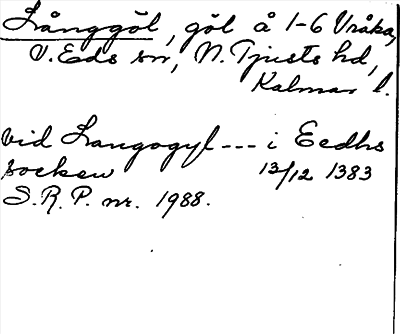 Långgöl, göl å 1-6 Vråka,
V. Eds sn, N. Tjusts hd,
Kalmar l.
vid Langogyl --- i Eedhs
socken 13/12 1383
S.R.P. nr. 1988.